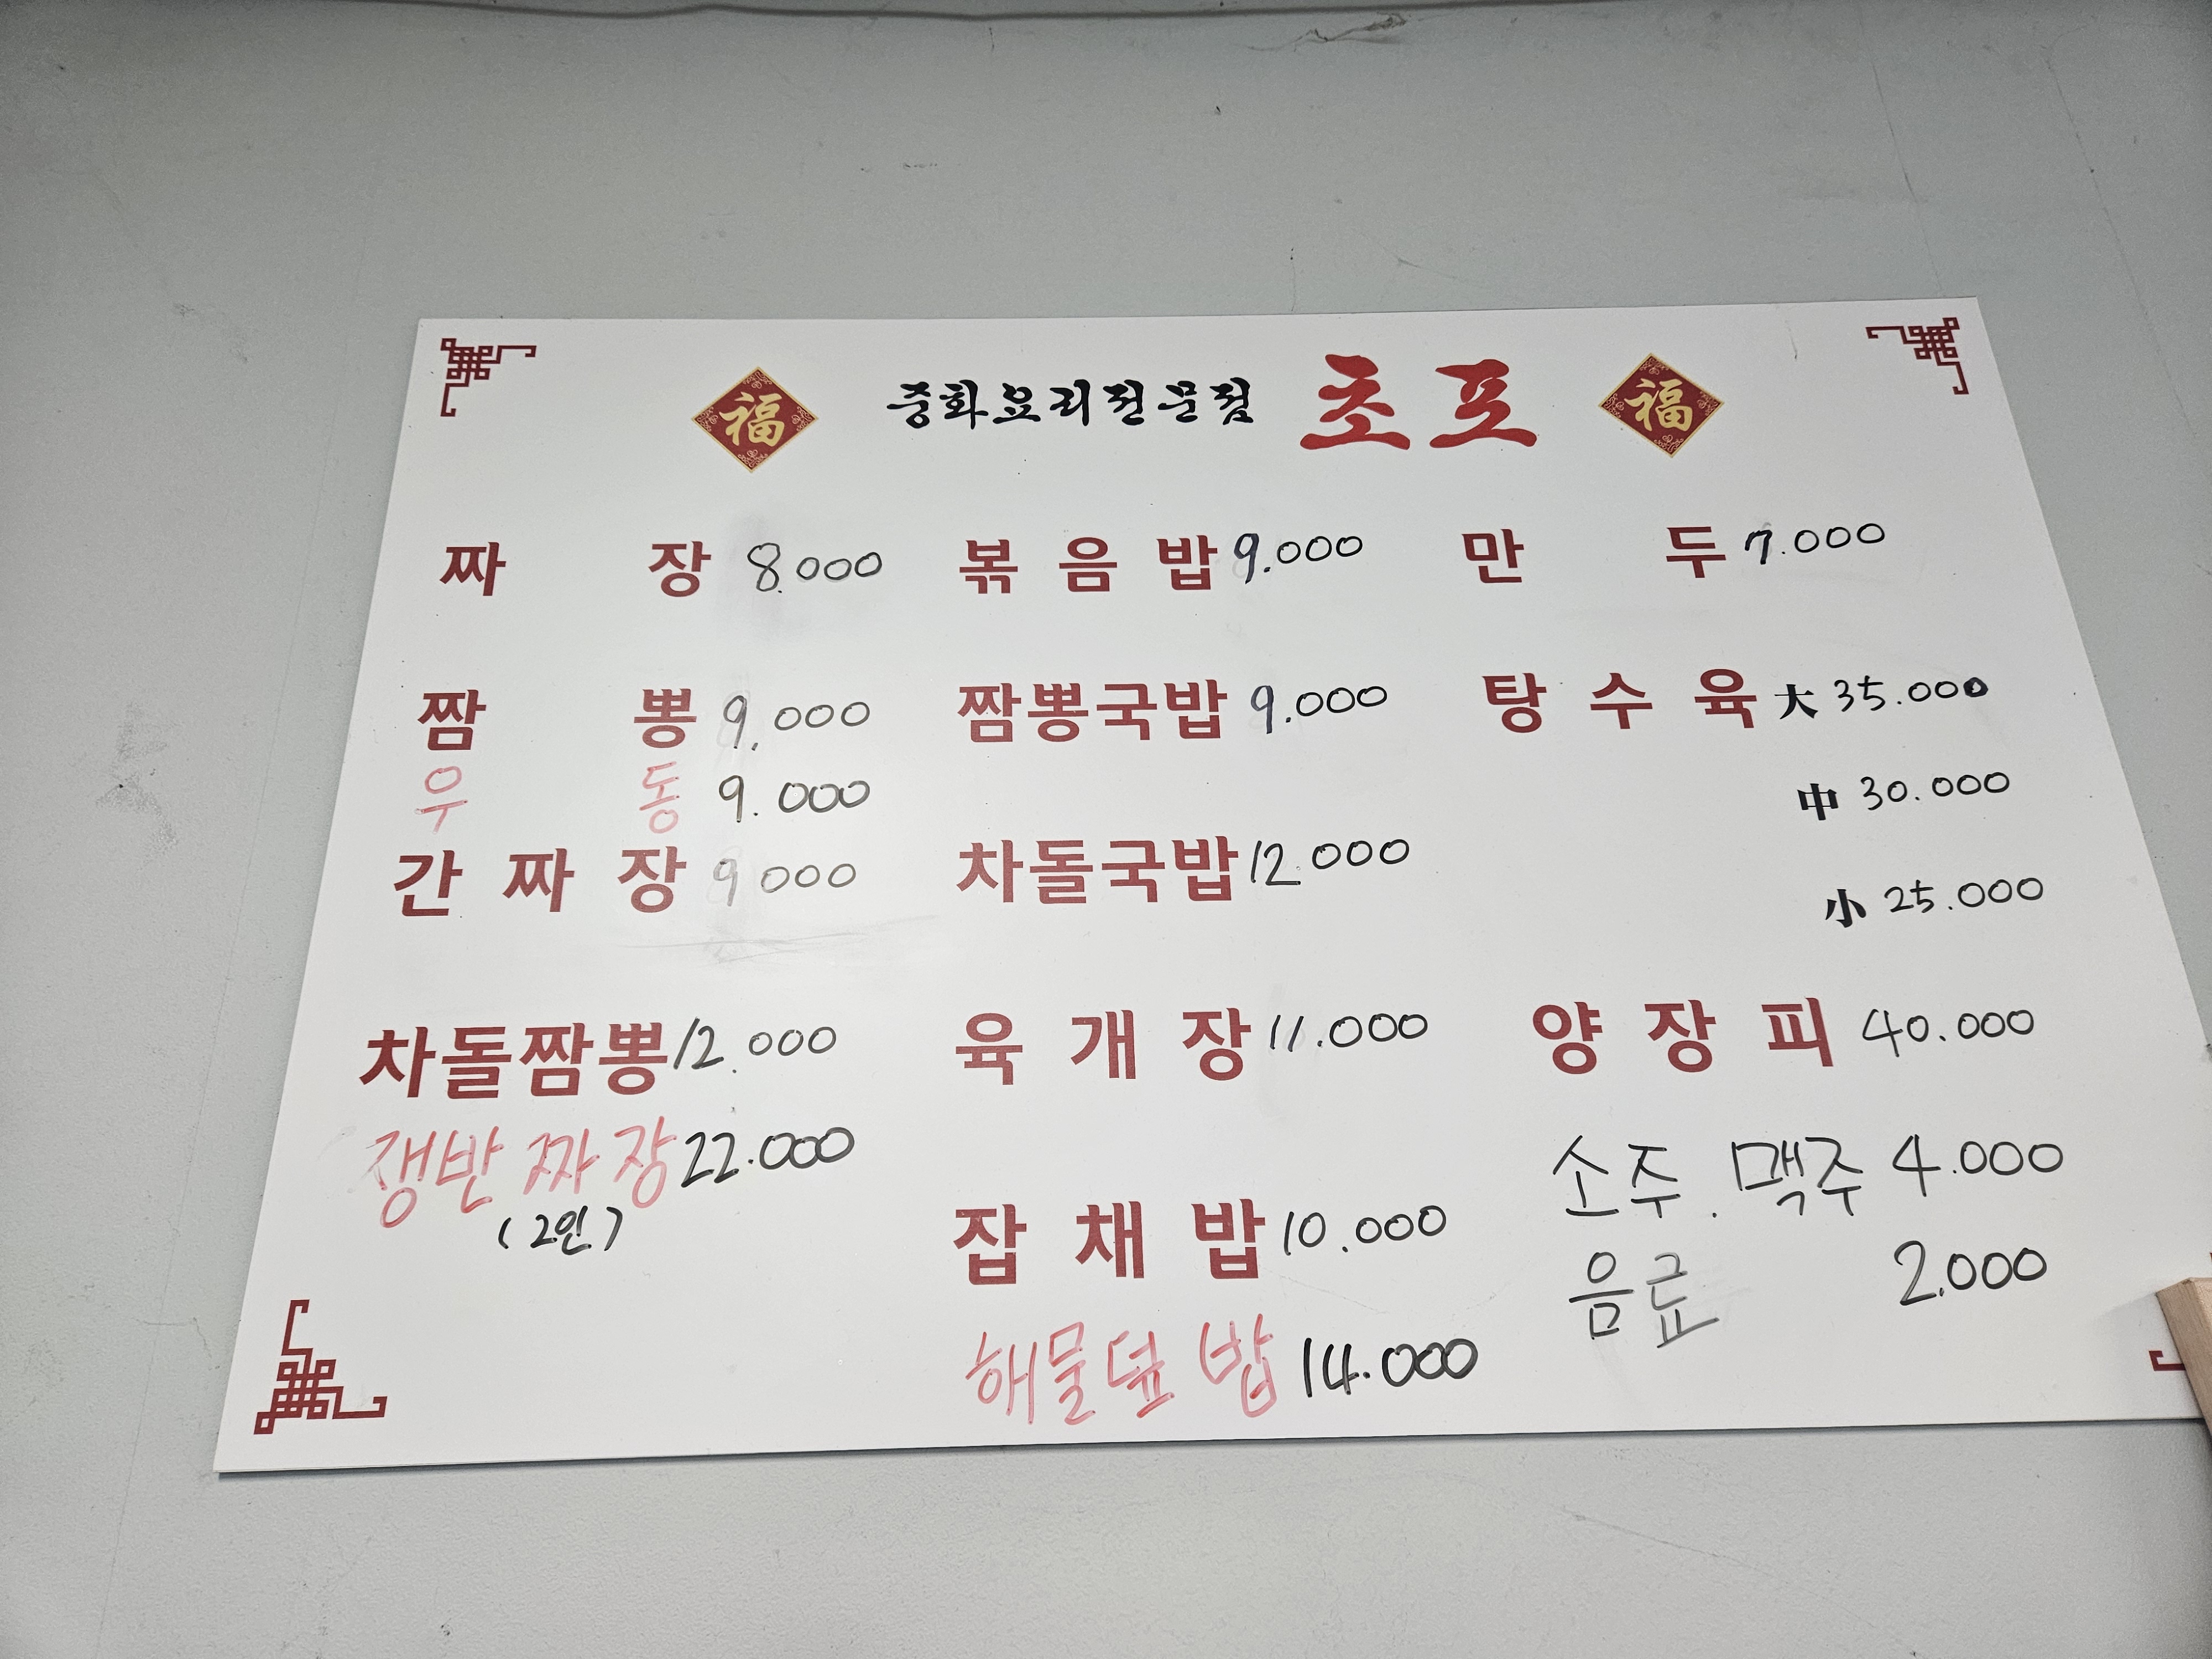 福 중화요리전문점 초포 福
짜 장 8.000
짬 뽕 9.000
우 동 9.000
간 짜 장 9000
차돌짬뽕 12.000
갱반 짜장 22.000
(2인)
볶 음 밥 9.000
짬뽕국밥 9.000
차돌국밥 12.000
육 개 장 11.000
잡 채 밥 10.000
해물덮밥 14.000
만 두 7.000
탕 수 육 大 35.000
中 30.000
小 25.000
양 장 피 40.000
소주. 맥주 4.000
음료 2.000